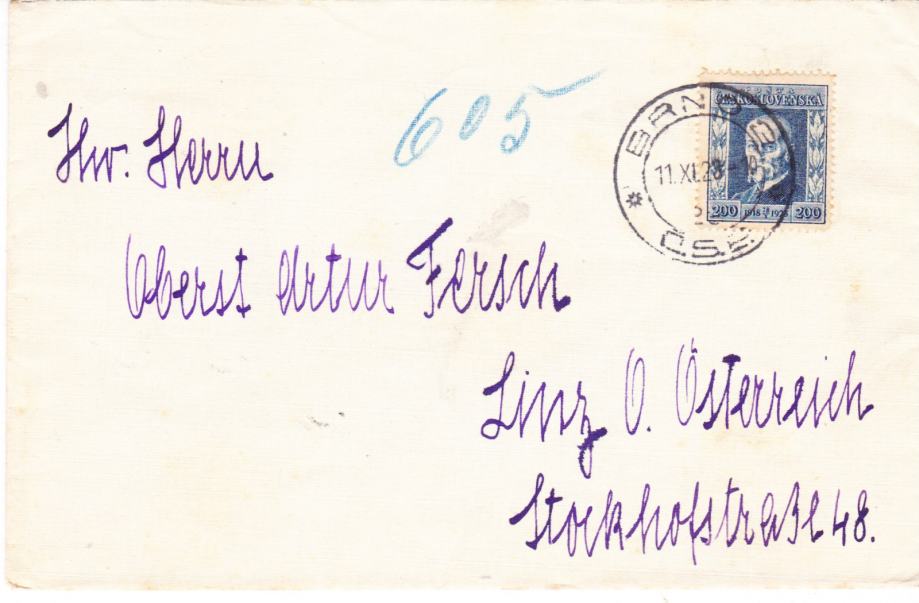 605
ČESKOSLOVENSKÁ
BRNO 2
11.XI.23
Č.S.R.
200 1918 1923 200
Hw. Herrn
Oberst Artur Fersch
Linz O. Österreich
Stockhofstraße 48.